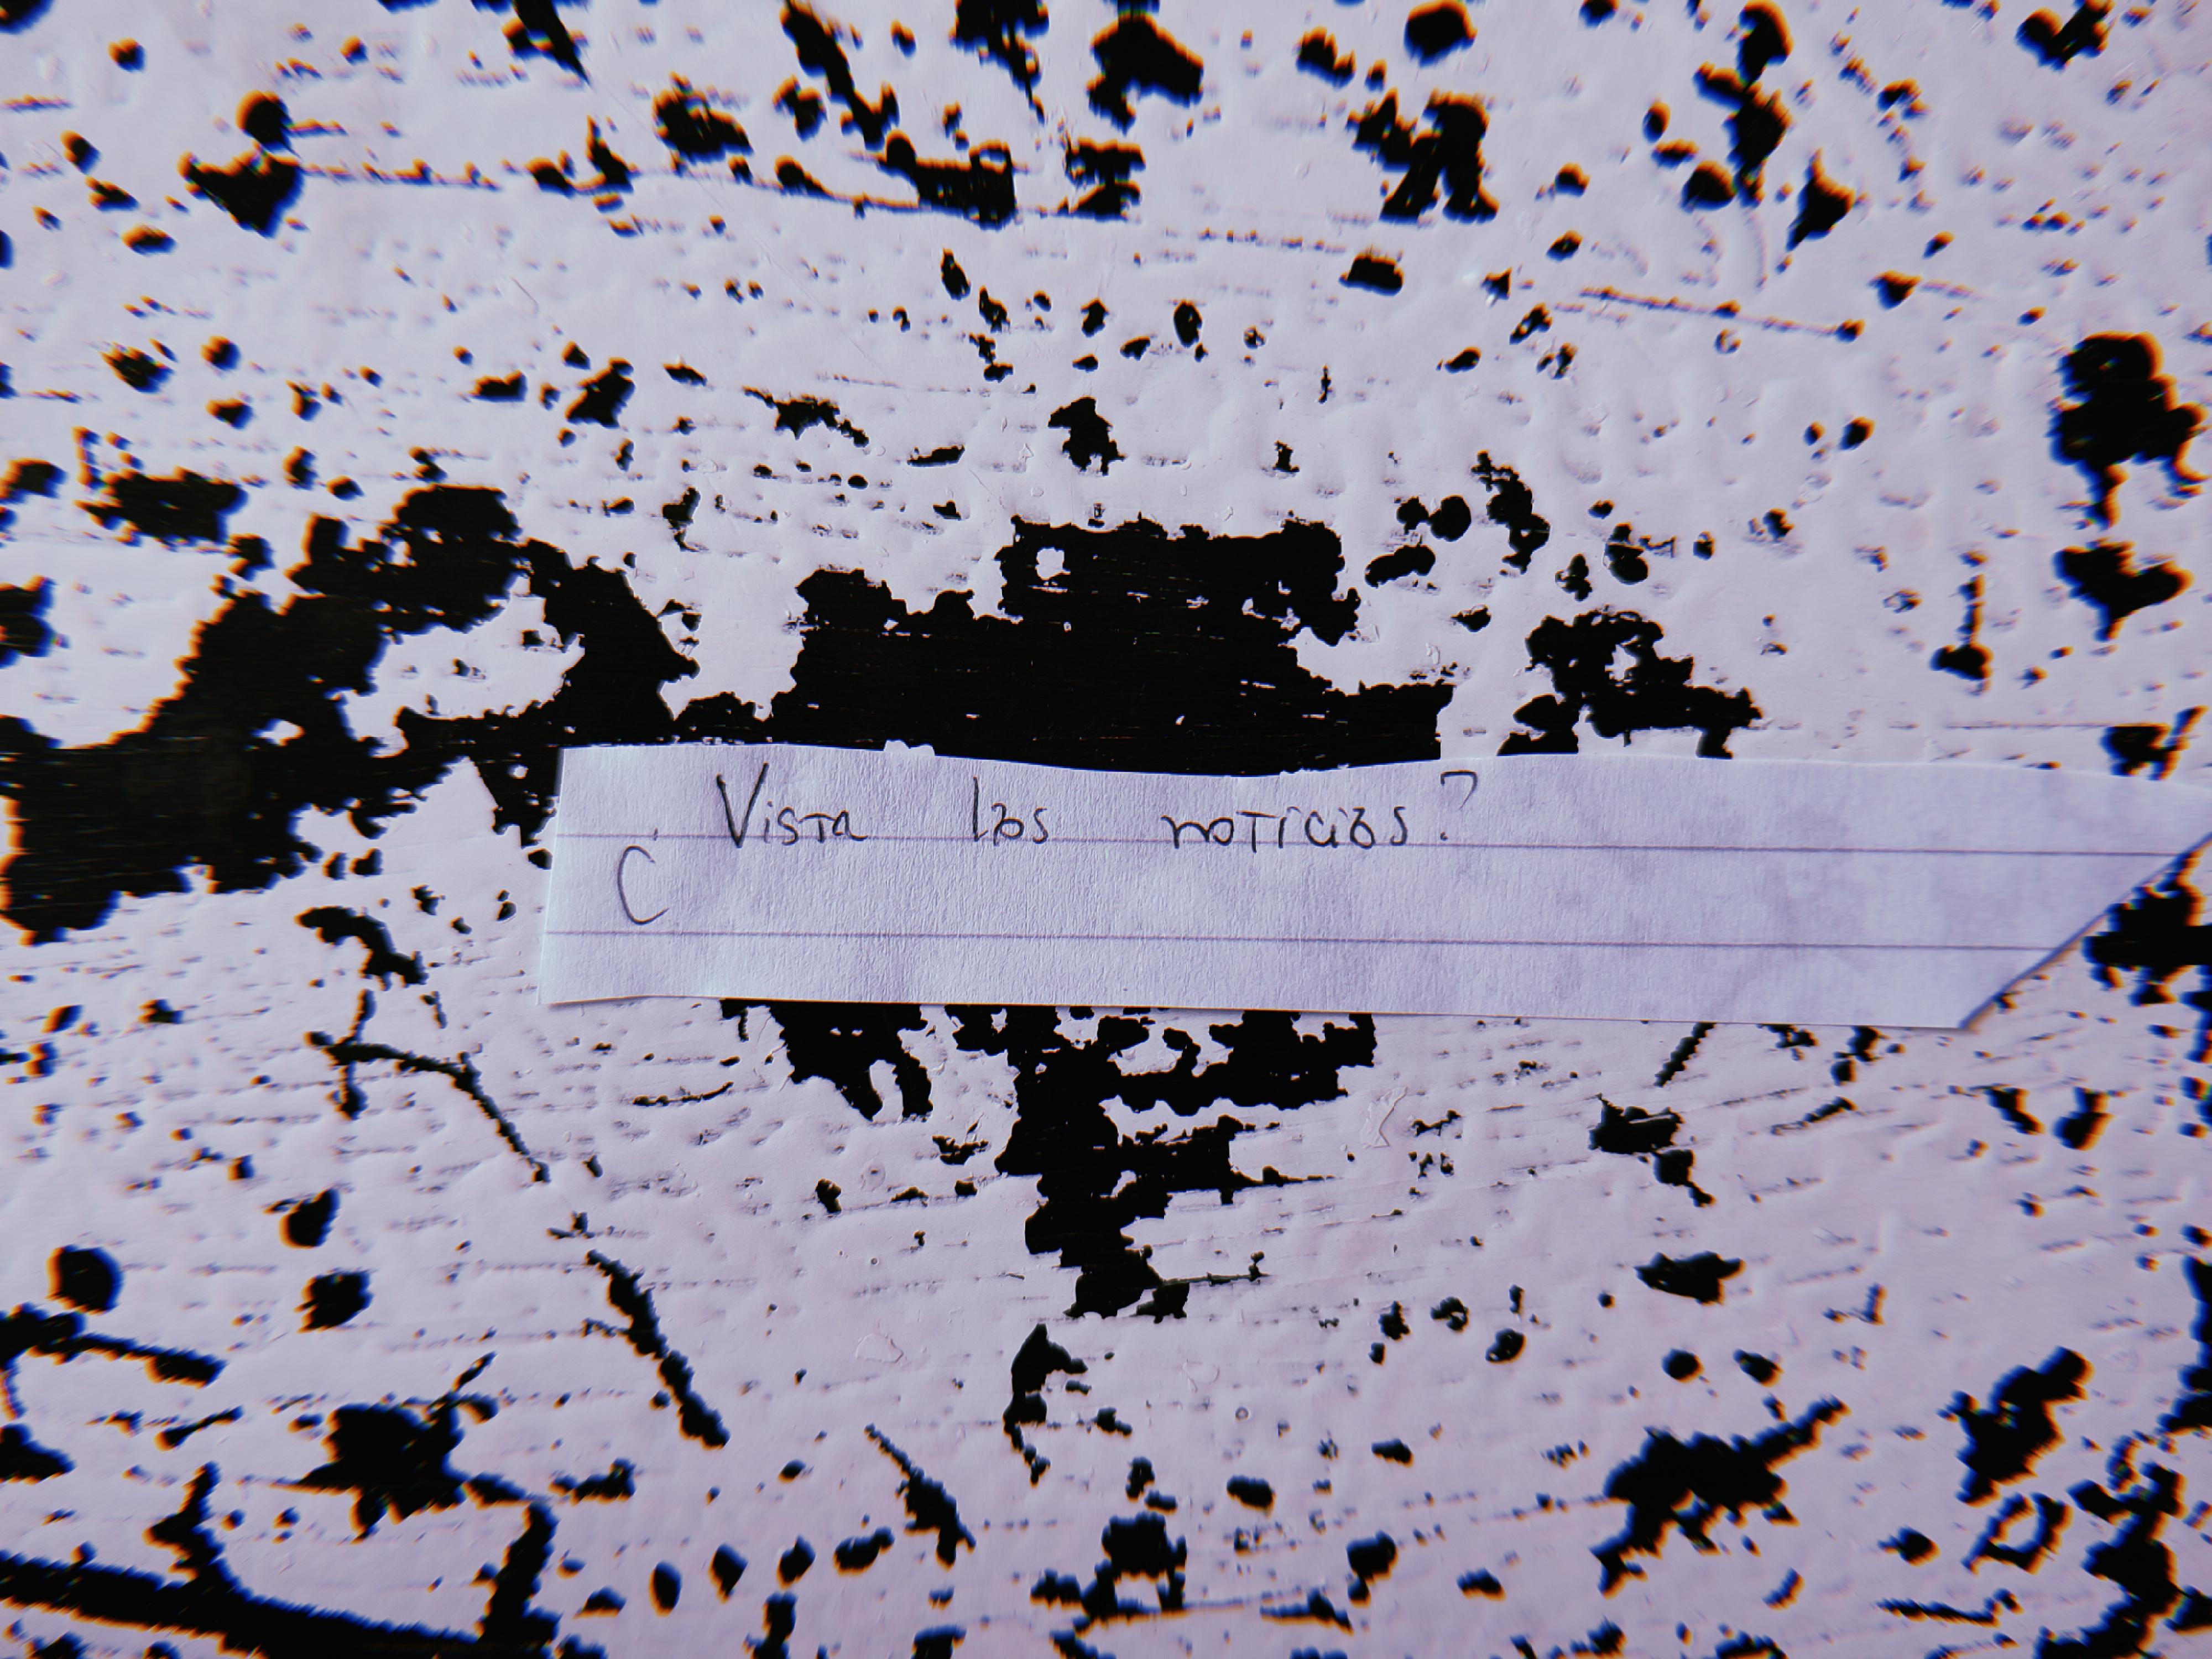 ¿Vista las noticias?